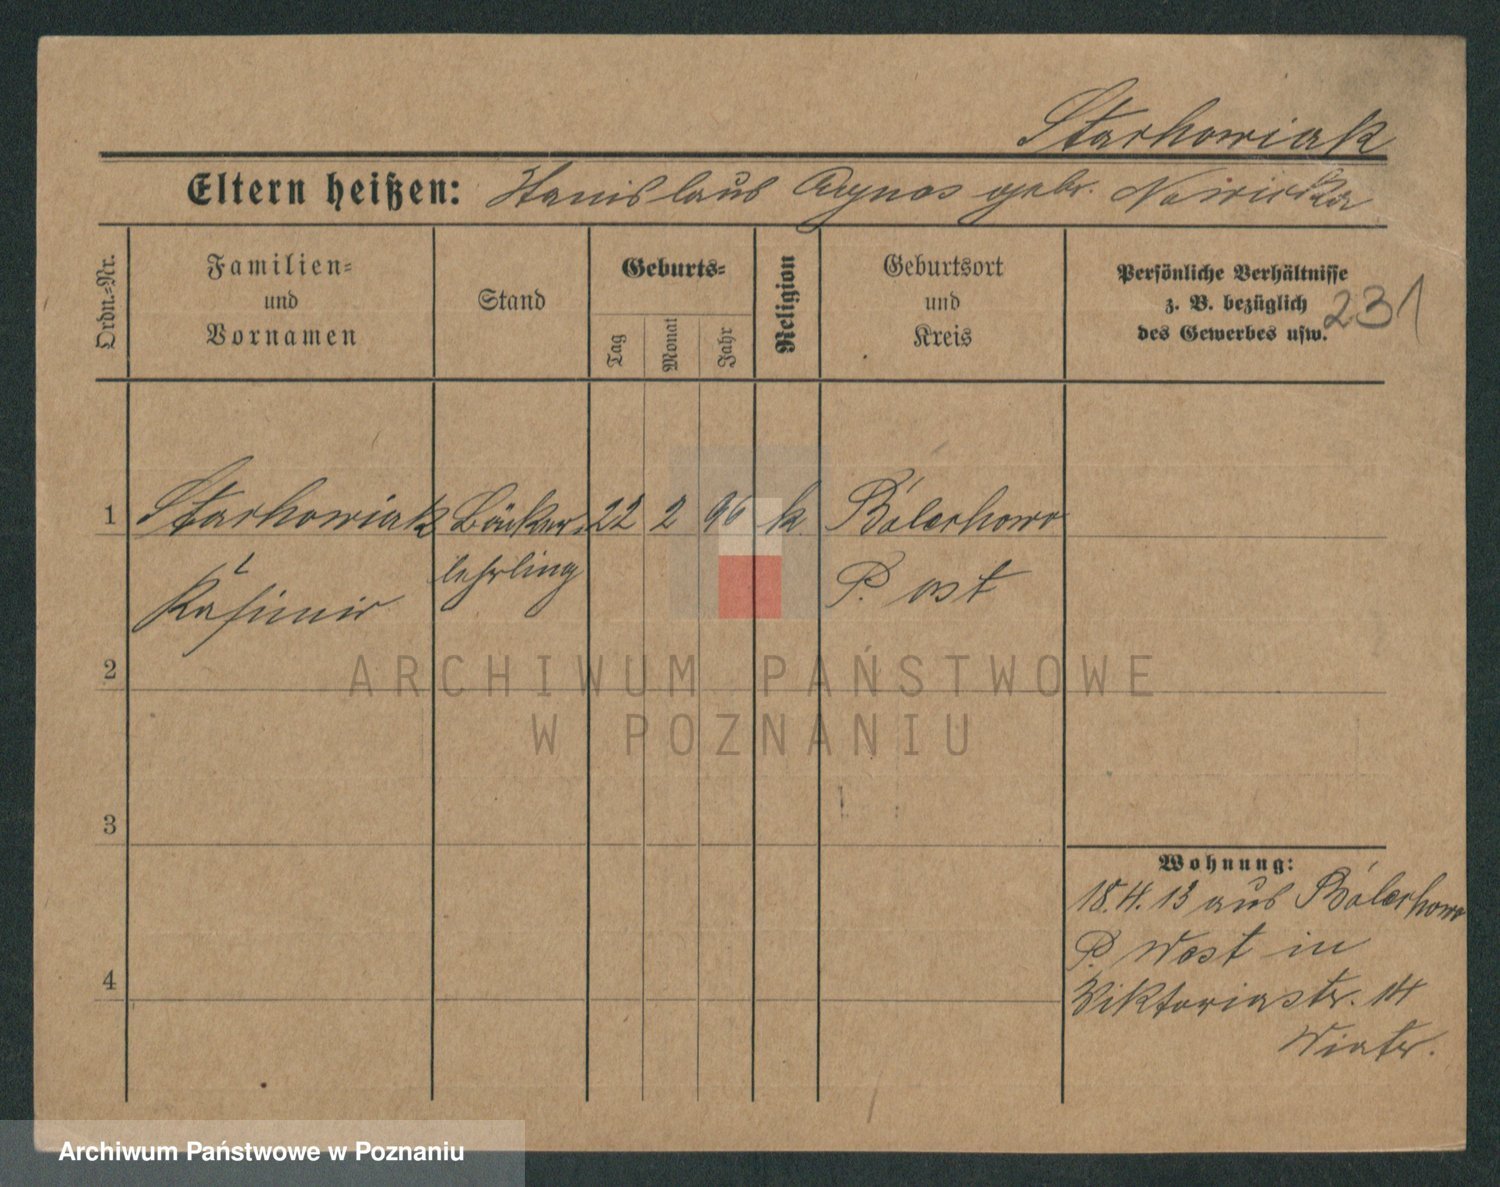 Starkowiak
Eltern heißen: Stanislaus Agnes gebr. Nowicka
Ordn.=Nr.
Familien=
und
Vornamen
Stand
Geburts=
Tag
Monat
Jahr
Religion
Geburtsort
und
Kreis
Persönliche Verhältnisse
z. B. bezüglich
des Gewerbes usw.
231
1 Starkowiak Bäcker= 22 2 96 k. Bolechowo
lehrling P. ost
Kasimir
2
3
4
Wohnung:
18.4.13 aus Bolechowo
P. West in
Viktoriastr. 14
ARCHIWUM PAŃSTWOWE
W POZNANIU
Archiwum Państwowe w Poznaniu